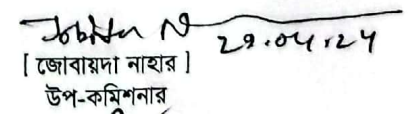 29.04.24
[ জোবায়দা নাহার ]
উপ-কমিশনার